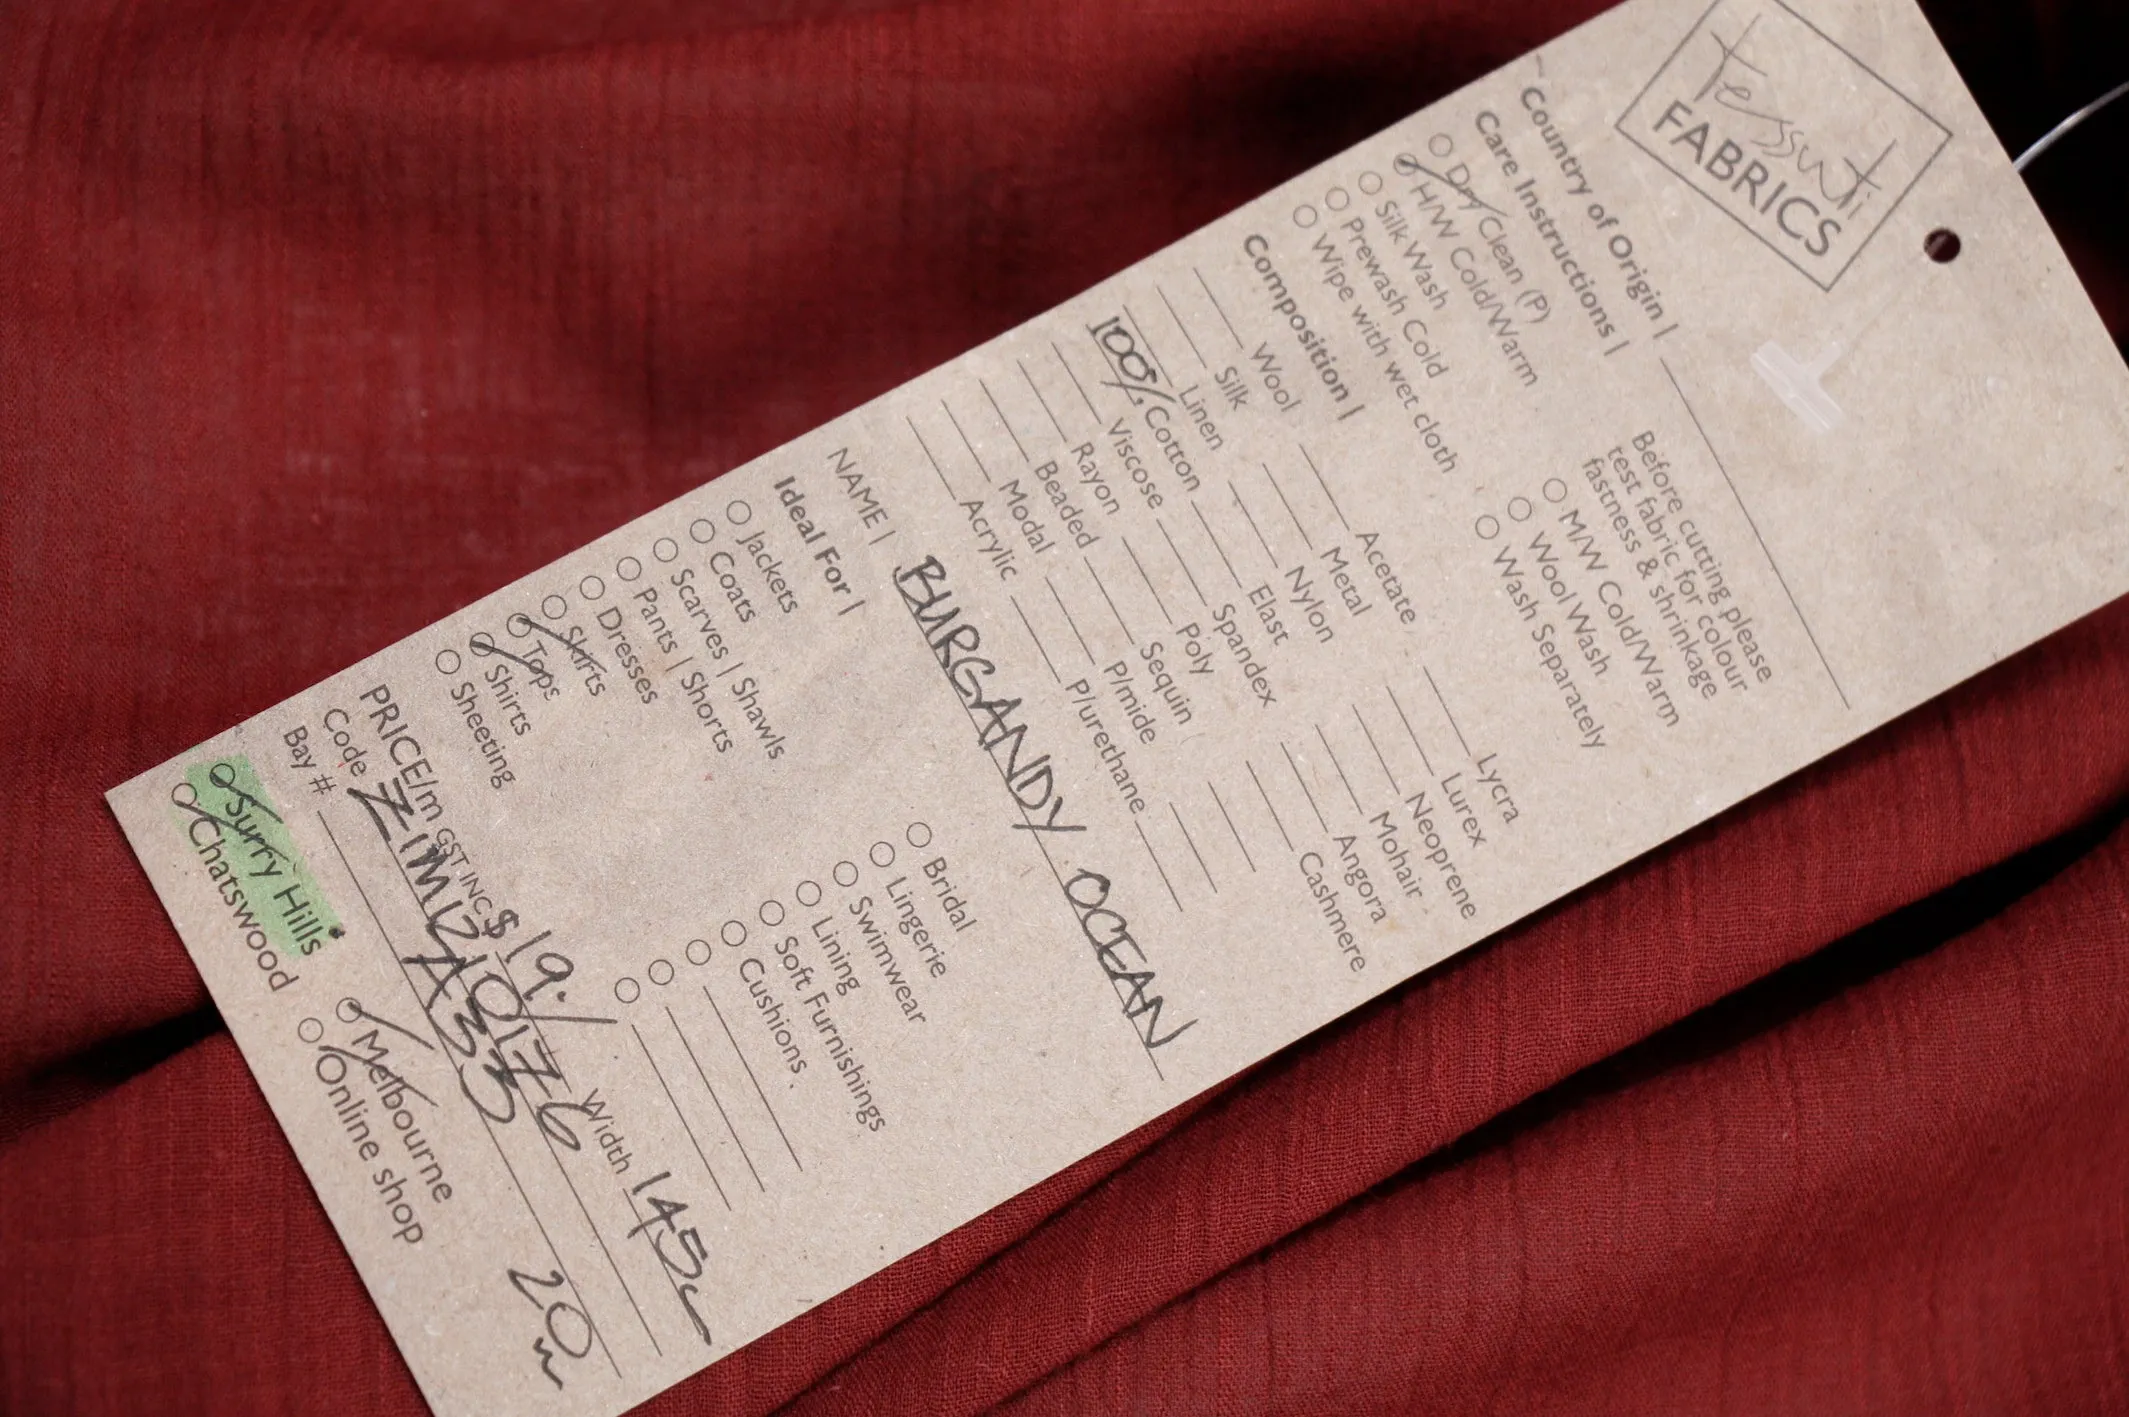 tessuti
FABRICS
Country of Origin |
Care Instructions |
Dry Clean (P)
H/W Cold/Warm
Silk Wash
Prewash Cold
Wipe with wet cloth
Before cutting please
test fabric for colour
fastness & shrinkage
M/W Cold/Warm
Wool Wash
Wash Separately
Composition |
Wool Acetate Lycra
Silk Metal Lurex
Linen Nylon Neoprene
100% Cotton Elast Mohair
Viscose Spandex Angora
Rayon Poly Cashmere
Beaded Sequin
Modal P/mide
Acrylic P/urethane
NAME | BURGANDY OCEAN
Ideal For |
Jackets Bridal
Coats Lingerie
Scarves | Shawls Swimwear
Pants | Shorts Lining
Dresses Soft Furnishings
Skirts Cushions
Tops
Shirts
Sheeting
PRICE/m GST INC $19./ Width 145c
Code ZIM1210176
Bay # A33 20m
Surry Hills Melbourne
Chatswood Online shop